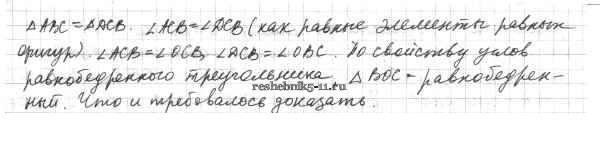 △ABC = △DCB. ∠ACB = ∠DCB (как равные элементы равных
фигур). ∠ACB = ∠OCB, ∠DCB = ∠OBC. По свойству углов
равнобедренного треугольника △BOC - равнобедрен-
ный. Что и требовалось доказать.
reshebnik5-11.ru